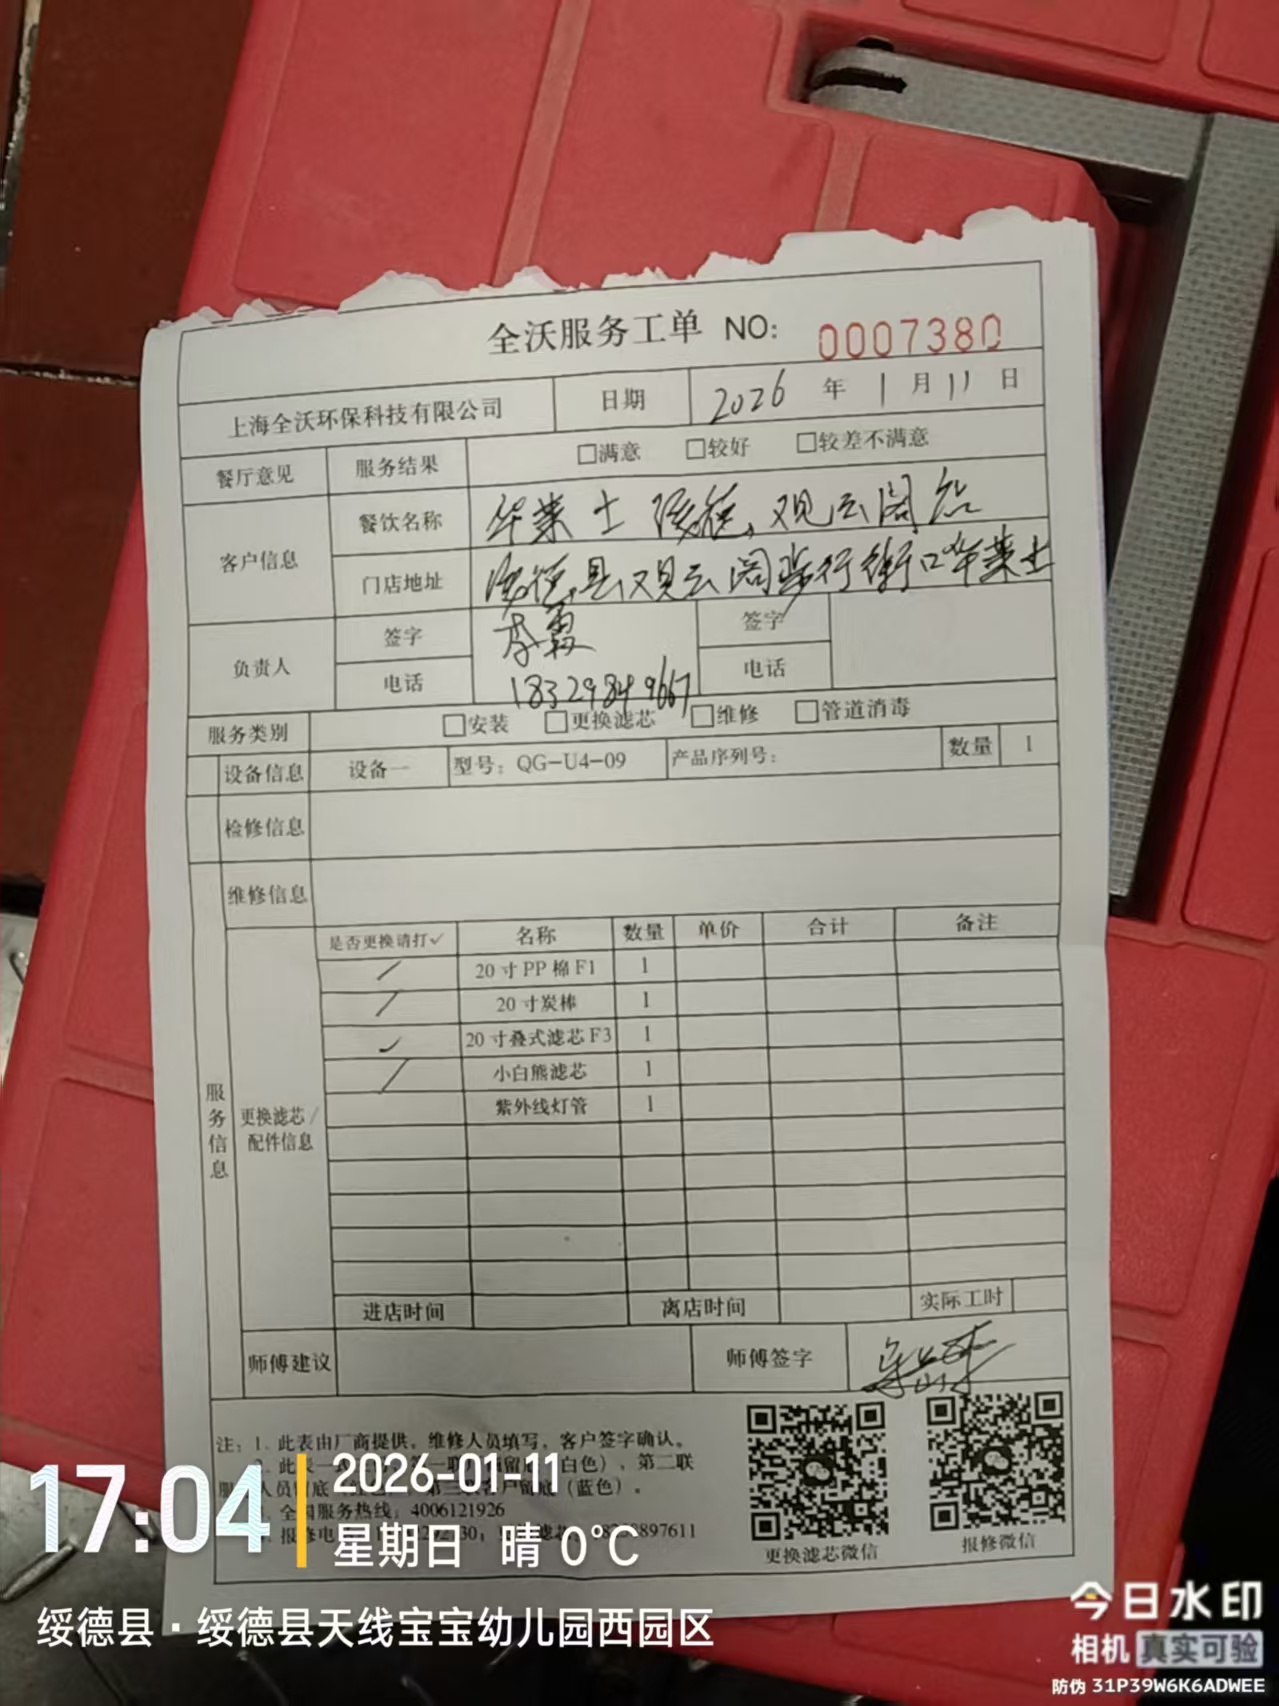 全沃服务工单 NO: 0007380
上海全沃环保科技有限公司 日期 2026 年 1 月 11 日
餐厅意见 服务结果 □满意 □较好 □较差不满意
客户信息 餐饮名称 华莱士 绥德观云阁店
门店地址 绥德县观云阁步行街口华莱士
负责人 签字 签字
电话 18329849667 电话
服务类别 □安装 □更换滤芯 □维修 □管道消毒
设备信息 设备一 型号：QG-U4-09 产品序列号： 数量 1
检修信息
维修信息
服务信息
更换滤芯/配件信息
是否更换请打✓ 名称 数量 单价 合计 备注
/ 20寸PP棉F1 1
/ 20寸炭棒 1
✓ 20寸叠式滤芯F3 1
/ 小白熊滤芯 1
紫外线灯管 1
进店时间 离店时间 实际工时
师傅建议 师傅签字
注：1. 此表由厂商提供，维修人员填写，客户签字确认。
2. 此表一 白色），第二联
人员留底 第三联客户留底（蓝色）。
全国服务热线：4006121926
报修电
897611
更换滤芯微信 报修微信
17:04
2026-01-11
星期日 晴 0℃
绥德县·绥德县天线宝宝幼儿园西园区
今日水印
相机 真实可验
防伪 31P39W6K6ADWEE